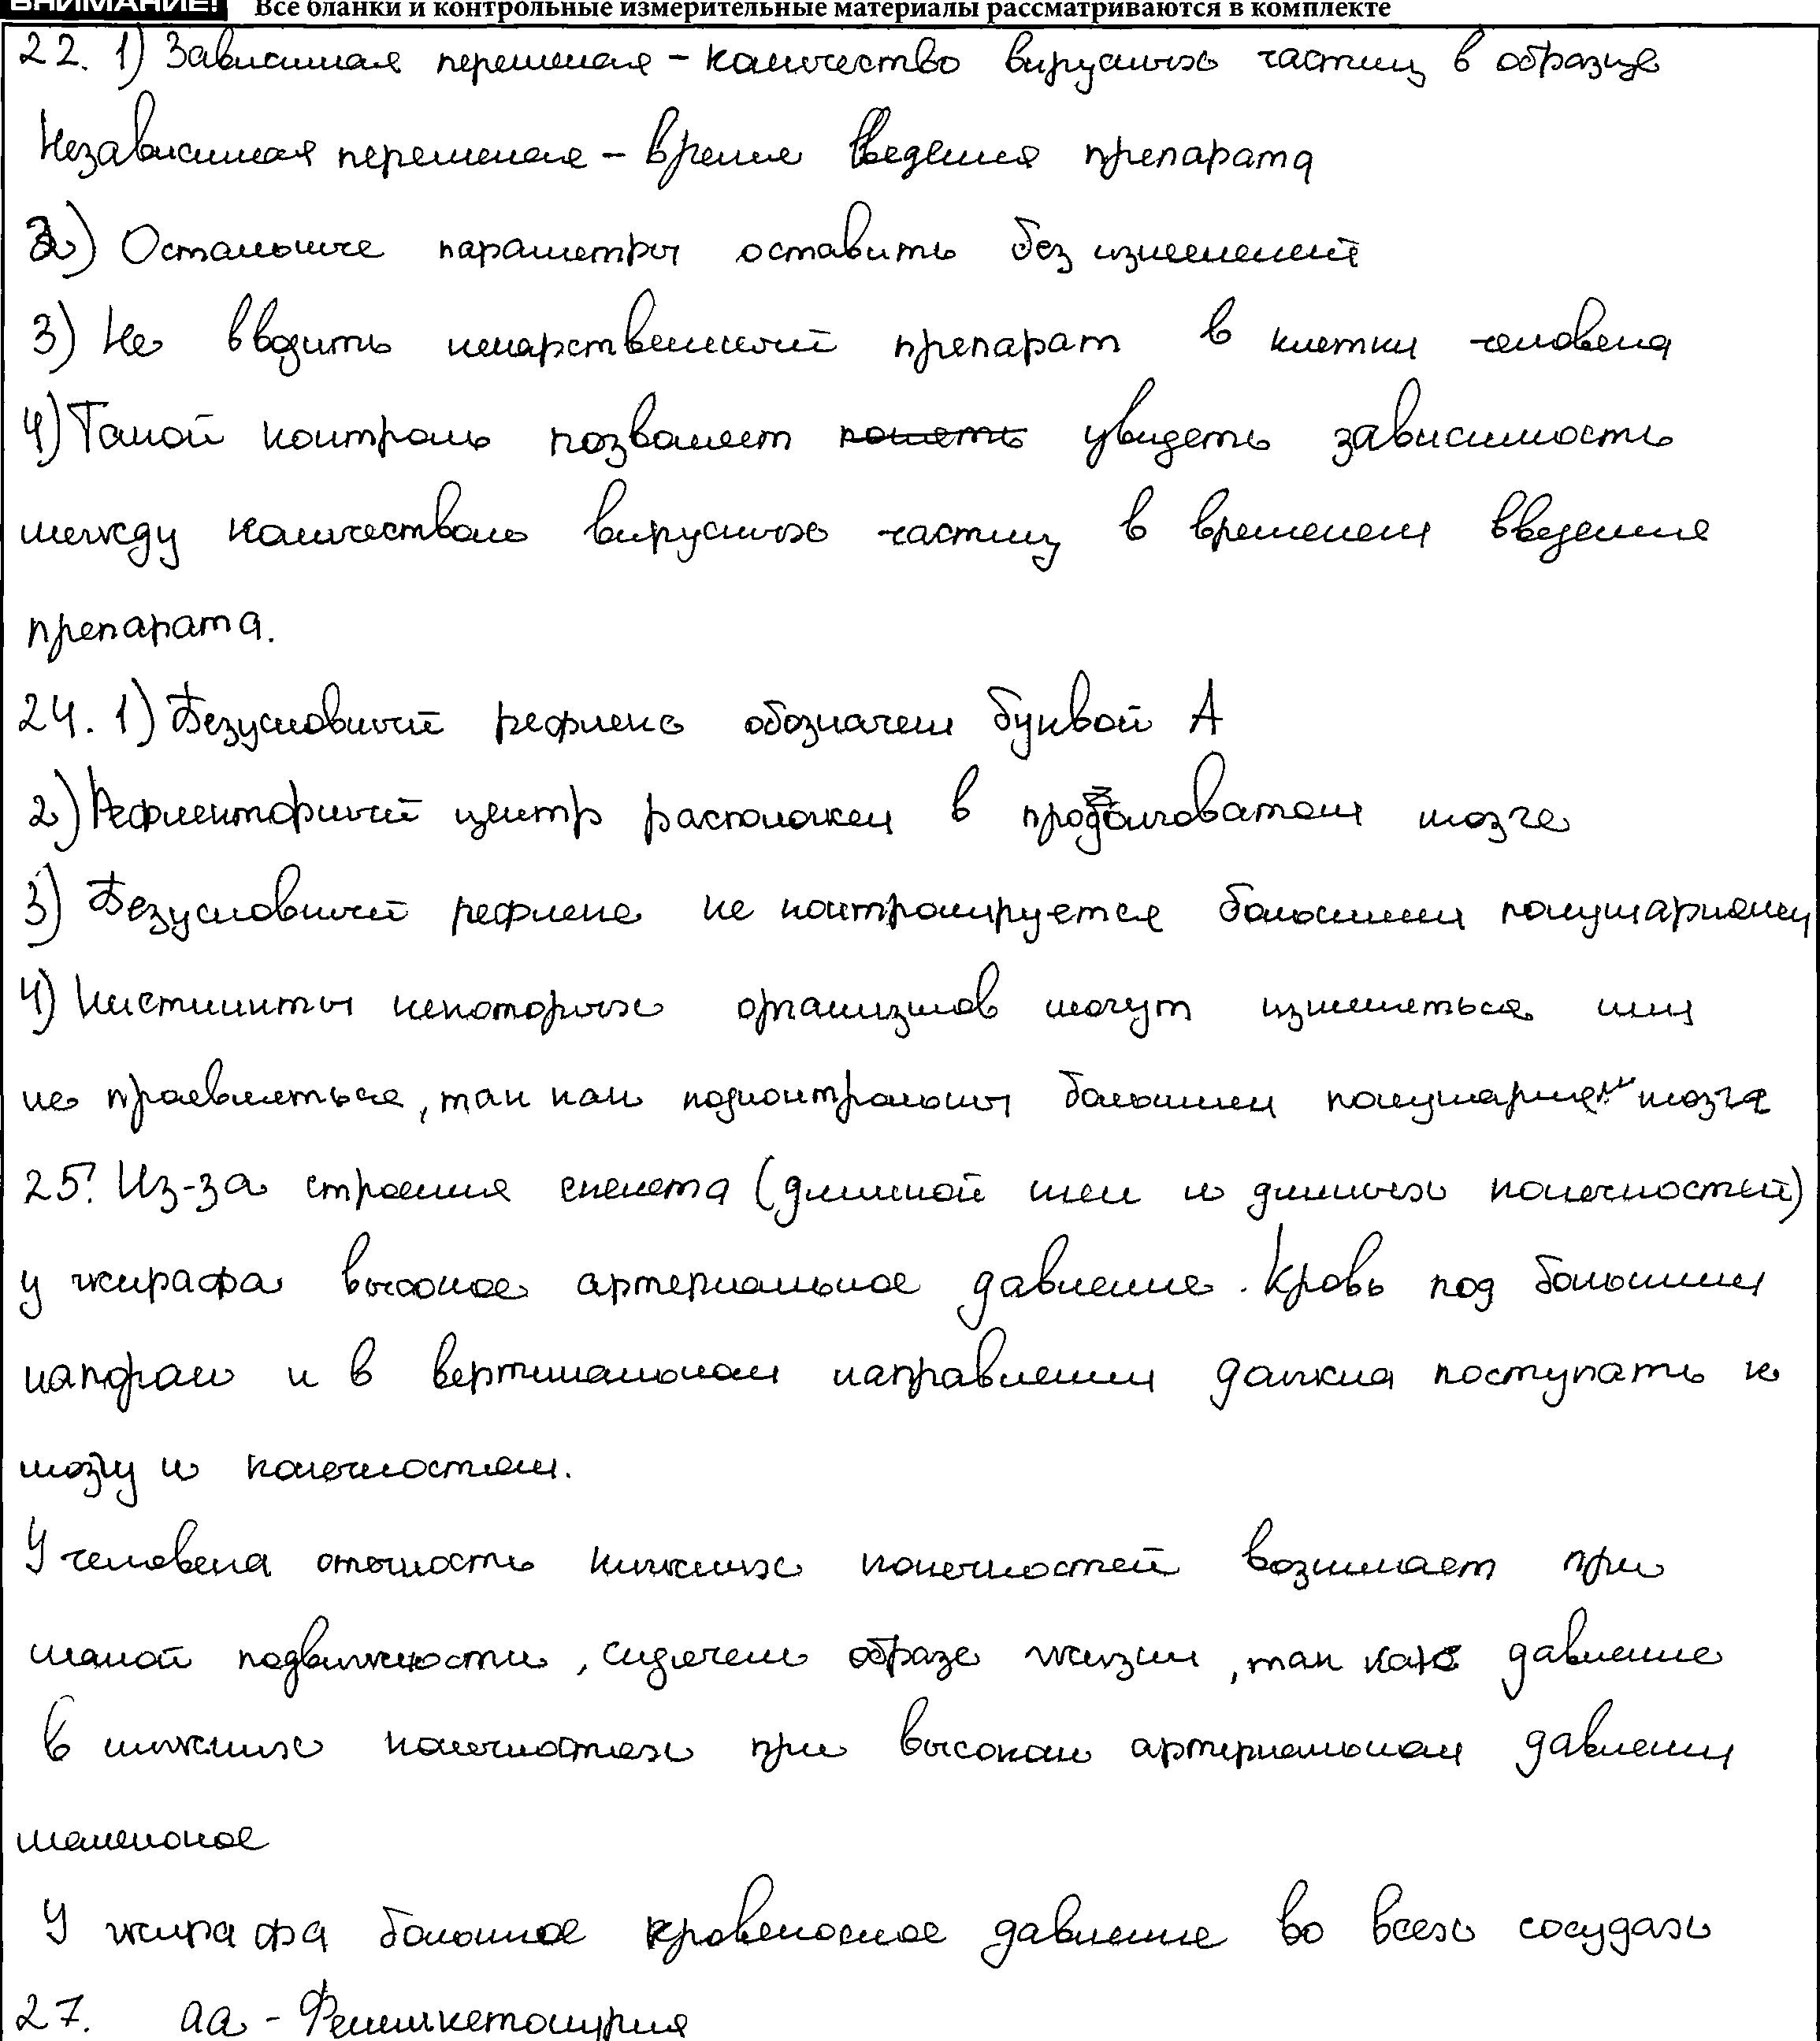 ВНИМАНИЕ! Все бланки и контрольные измерительные материалы рассматриваются в комплекте
22. 1) Зависимая переменая - количество вирусных частиц в образце
Независимая переменая - время введения препарата
2) Остальные параметры оставить без изменений
3) Не вводить лекарственный препарат в клетки человека
4) Такой контроль позволяет понять увидеть зависимость
между количеством вирусных частиц в временем введения
препарата.
24. 1) Безусловный рефлекс обозначен буквой А
2) Рефлекторный центр расположен в продолговатом мозге
3) Безусловный рефлекс не контролируется большими полушариями
4) Инстинкты некоторых организмов могут изменяться или
не проявляться, так как подконтрольны большим полушариям мозга
25. Из-за строения скелета (длинной шеи и длинных конечностей)
у жирафа высокое артериальное давление. Кровь под большим
напором и в вертикальном направлении должна поступать к
мозгу и конечностям.
У человека отечность нижних конечностей возникает при
малой подвижности, сидячем образе жизни, так как давление
в нижних конечностях при высоком артериальном давлении
маленькое
У жирафа большое кровеносное давление во всех сосудах
27. аа - Фенилкетонурия